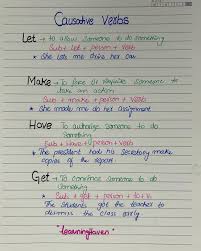 Causative Verbs
Let → to allow someone to do something
Sub + Let + person + Verb
* She lets me drive her car
Make → To force or require someone to
take an action
Sub + make + person + Verb
* She made me do her assignment
Have → To authorize someone to do
something
Sub + Have + person + Verb
* The president had his secretary make
copies of the report.
Get → To convince someone to do
something
Sub + get + person + to + V₁
The students got the teacher to
dismiss the class early
*learninghaven*